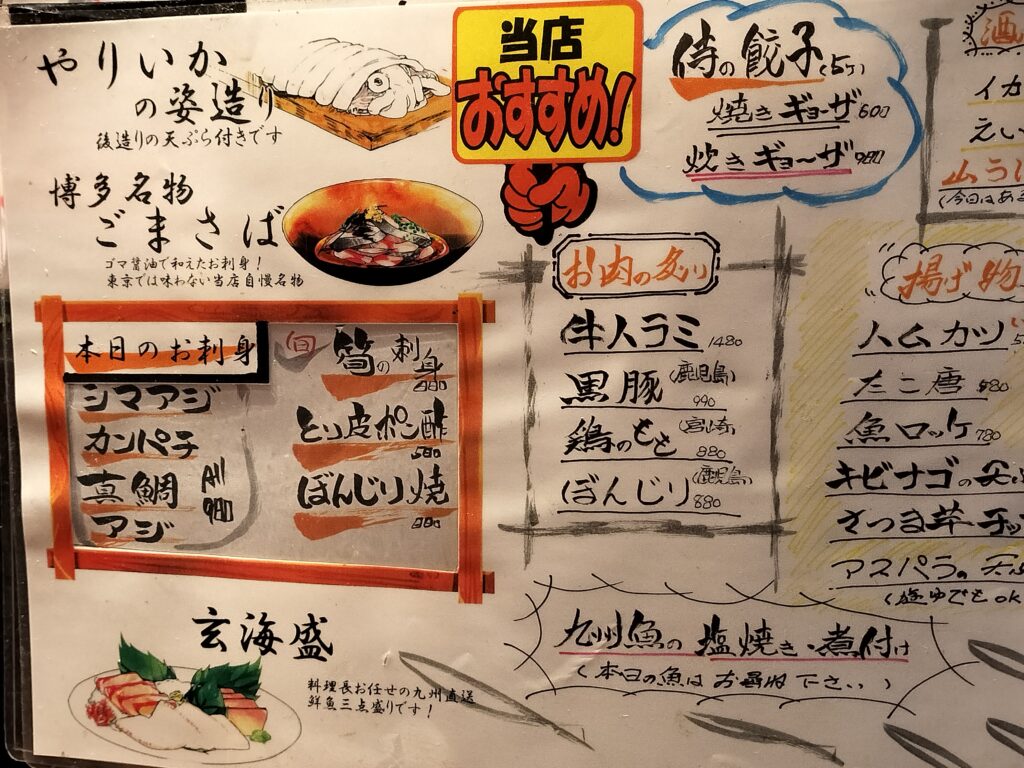 やりいか
の姿造り
後造りの天ぷら付きです
博多名物
ごまさば
ゴマ醤油で和えたお刺身！
東京では味わない当店自慢名物
当店
おすすめ!
侍の餃子(5ヶ)
焼きギョーザ600
炊きギョーザ980
本日のお刺身
シマアジ
カンパチ
真鯛
アジ
All
980
旬
筍の刺身
とり皮ポン酢
580
ぼんじり焼
880
お肉の炙り
牛ハラミ1480
黒豚(鹿児島)
990
鶏のもも(宮崎)
880
ぼんじり(鹿児島)
880
酒
イカ
えい
山う
(今日はあ
揚げ物
ハムカツ
たこ唐
魚ロッケ780
キビナゴの天
さつま芋チッ
アスパラの天
(塩ゆでもOK
九州魚の塩焼き・煮付け
(本日の魚はお尋ね下さい)
玄海盛
料理長お任せの九州直送
鮮魚三点盛りです！